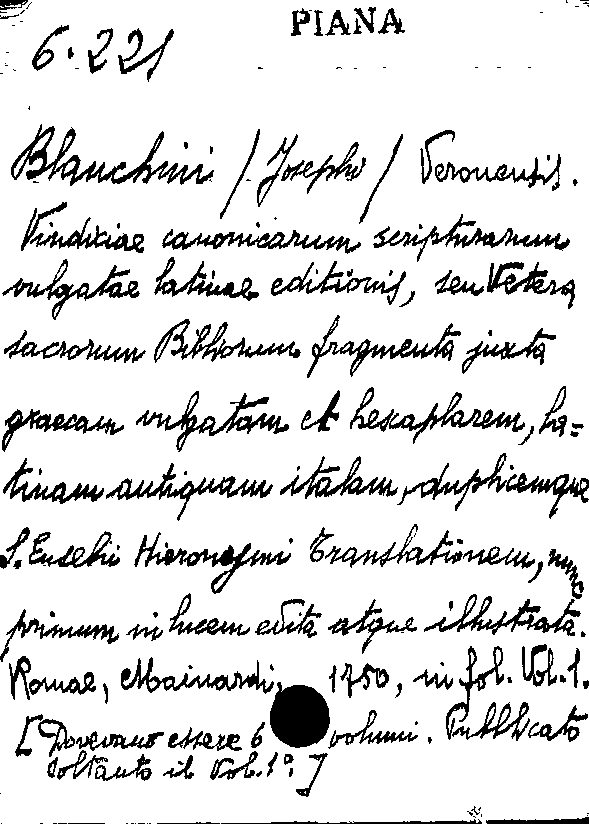 PIANA
6.221
Blanchini / Josephi / Veronensis.
Vindiciae canonicarum scripturarum
vulgatae latinae editionis, seu Vetera
sacrorum Bibliorum fragmenta juxta
graecam vulgatam et hexaplarem, la=
tinam antiquam italam, duplicemque
S. Eusebii Hieronymi Translationem, nunc
primum in lucem edita atque illustrata.
Romae, Mainardi, 1750, in fol. Vol. 1.
[Dovevano essere 6 volumi. Pubblicato
soltanto il Vol. 1º.]